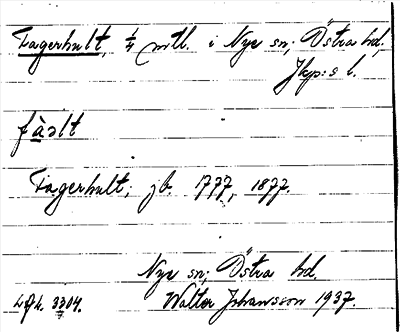 Fagerhult, 1/4 mtl. i Nye sn; Östra hd,
Jkp:s l.
fàəlt
Fagerhult; jb. 1777, 1877.
Nye sn; Östra hd.
Walter Johansson 1937.